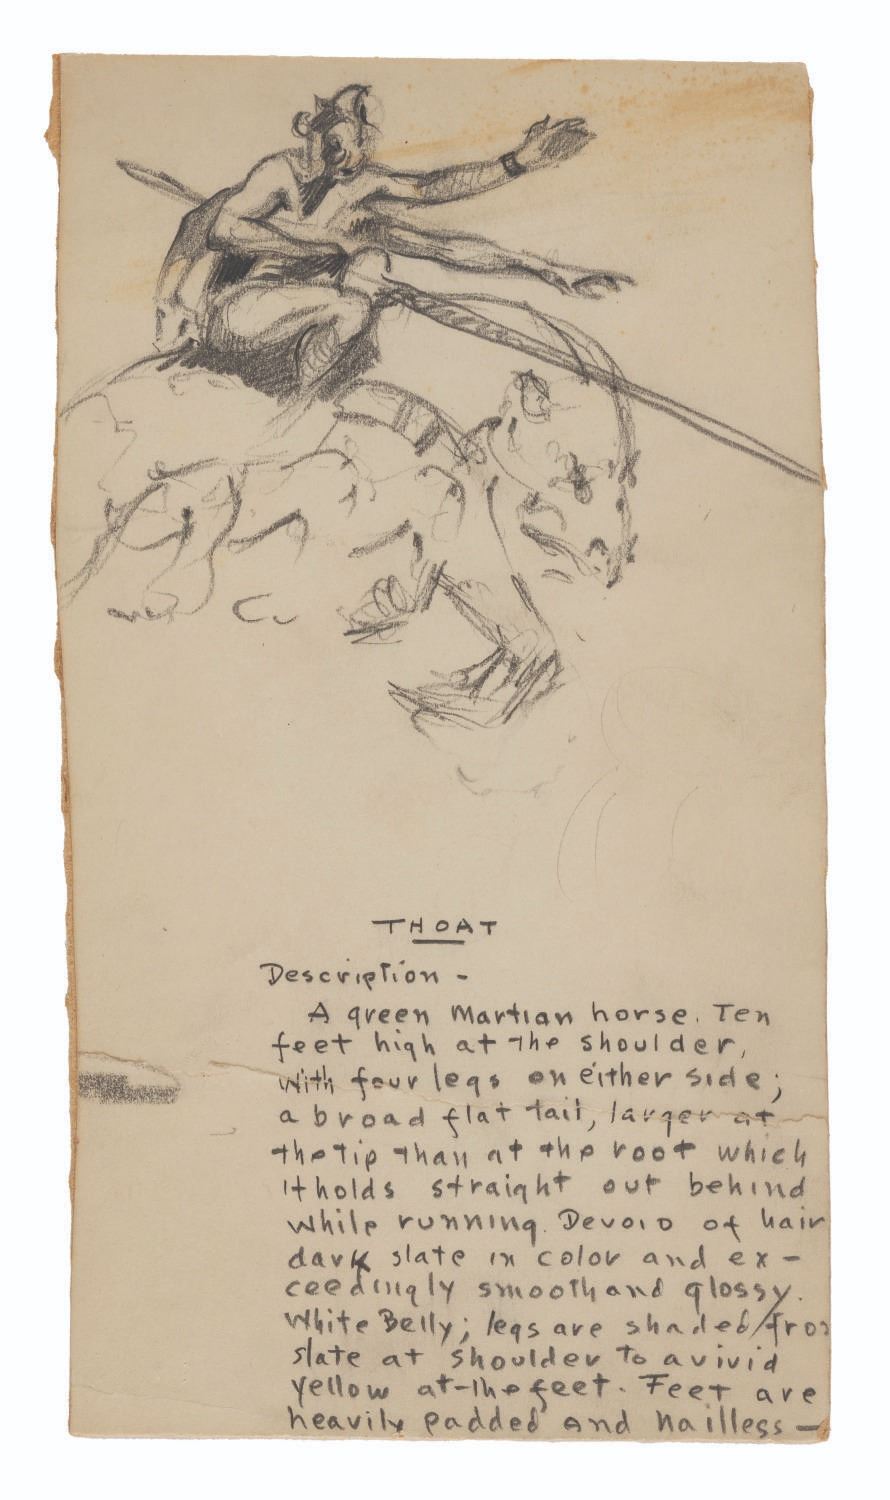 THOAT
Description -
A green Martian horse. Ten
feet high at the shoulder,
with four legs on either side;
a broad flat tail, larger at
the tip than at the root which
it holds straight out behind
while running. Devoid of hair
dark slate in color and ex-
ceedingly smooth and glossy.
White Belly; legs are shaded / from
slate at shoulder to a vivid
yellow at the feet. Feet are
heavily padded and nailless -